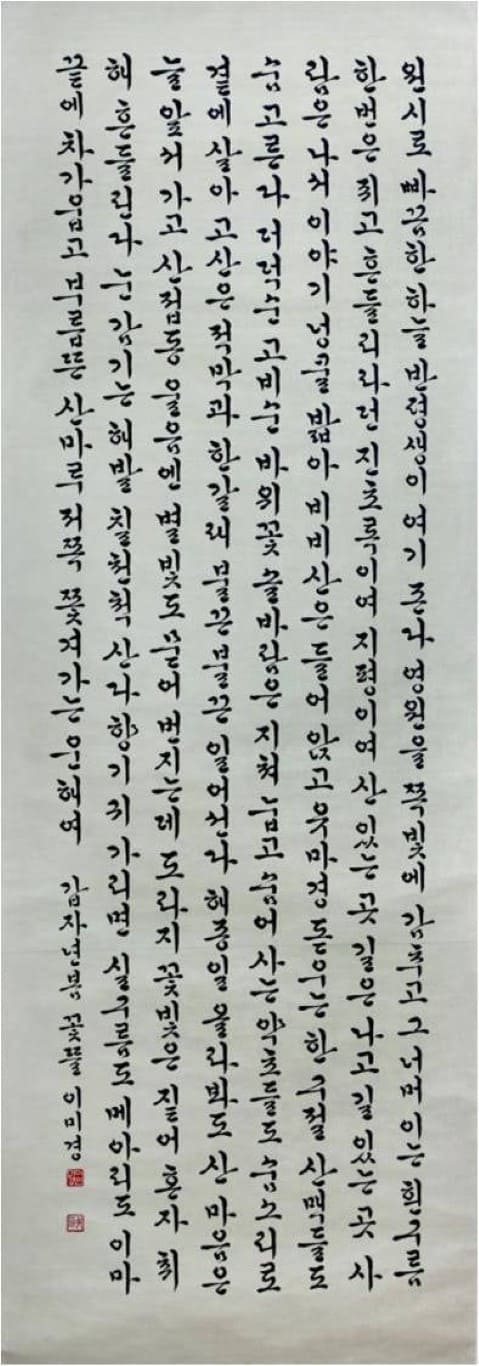 원시로 빠끔한 하늘 반평생이 여기 존다 영원을 쪽빛에 감추고 그 너머 이는 흰구름
한번은 쥐고 흔들리라던 진초록이여 지평이여 산 있는 곳 길은 나고 길 있는 곳 사
람은 나서 이야기 넝쿨 밟아 비비 산은 들어 앉고 웃마경 돋우는 한 구절 산맥들도
숨 고른다 더덕순 고비순 바위꽃 솔바람은 지쳐 눕고 숨어 사는 약초들도 숨소리로
곁에 살아 고산은 적막과 한갈래 불끈불끈 일어선다 해종일 올라봐도 산 마음은
늘 앞서 가고 산접동 울음엔 별빛도 묻어 번지는데 도라지 꽃빛은 짙어 혼자 취
해 흔들린다 눈 감기는 해발 칠천척 산다향기 귀 가리면 실구름도 메아리도 이마
끝에 차가웁고 부릅뜬 산마루 저쪽 쫓겨가는 운해여 갑자년봄 꽃뜰 이미경